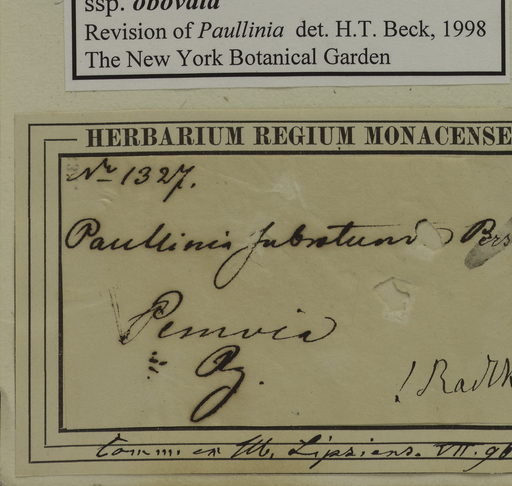 ssp. obovata
Revision of Paullinia det. H.T. Beck, 1998
The New York Botanical Garden
HERBARIUM REGIUM MONACENSE
Nr. 1327.
Paullinia subrotunda Pers
Peruvia
! Radlk
Comm. ex Hb. Lipsiens. VII. 90